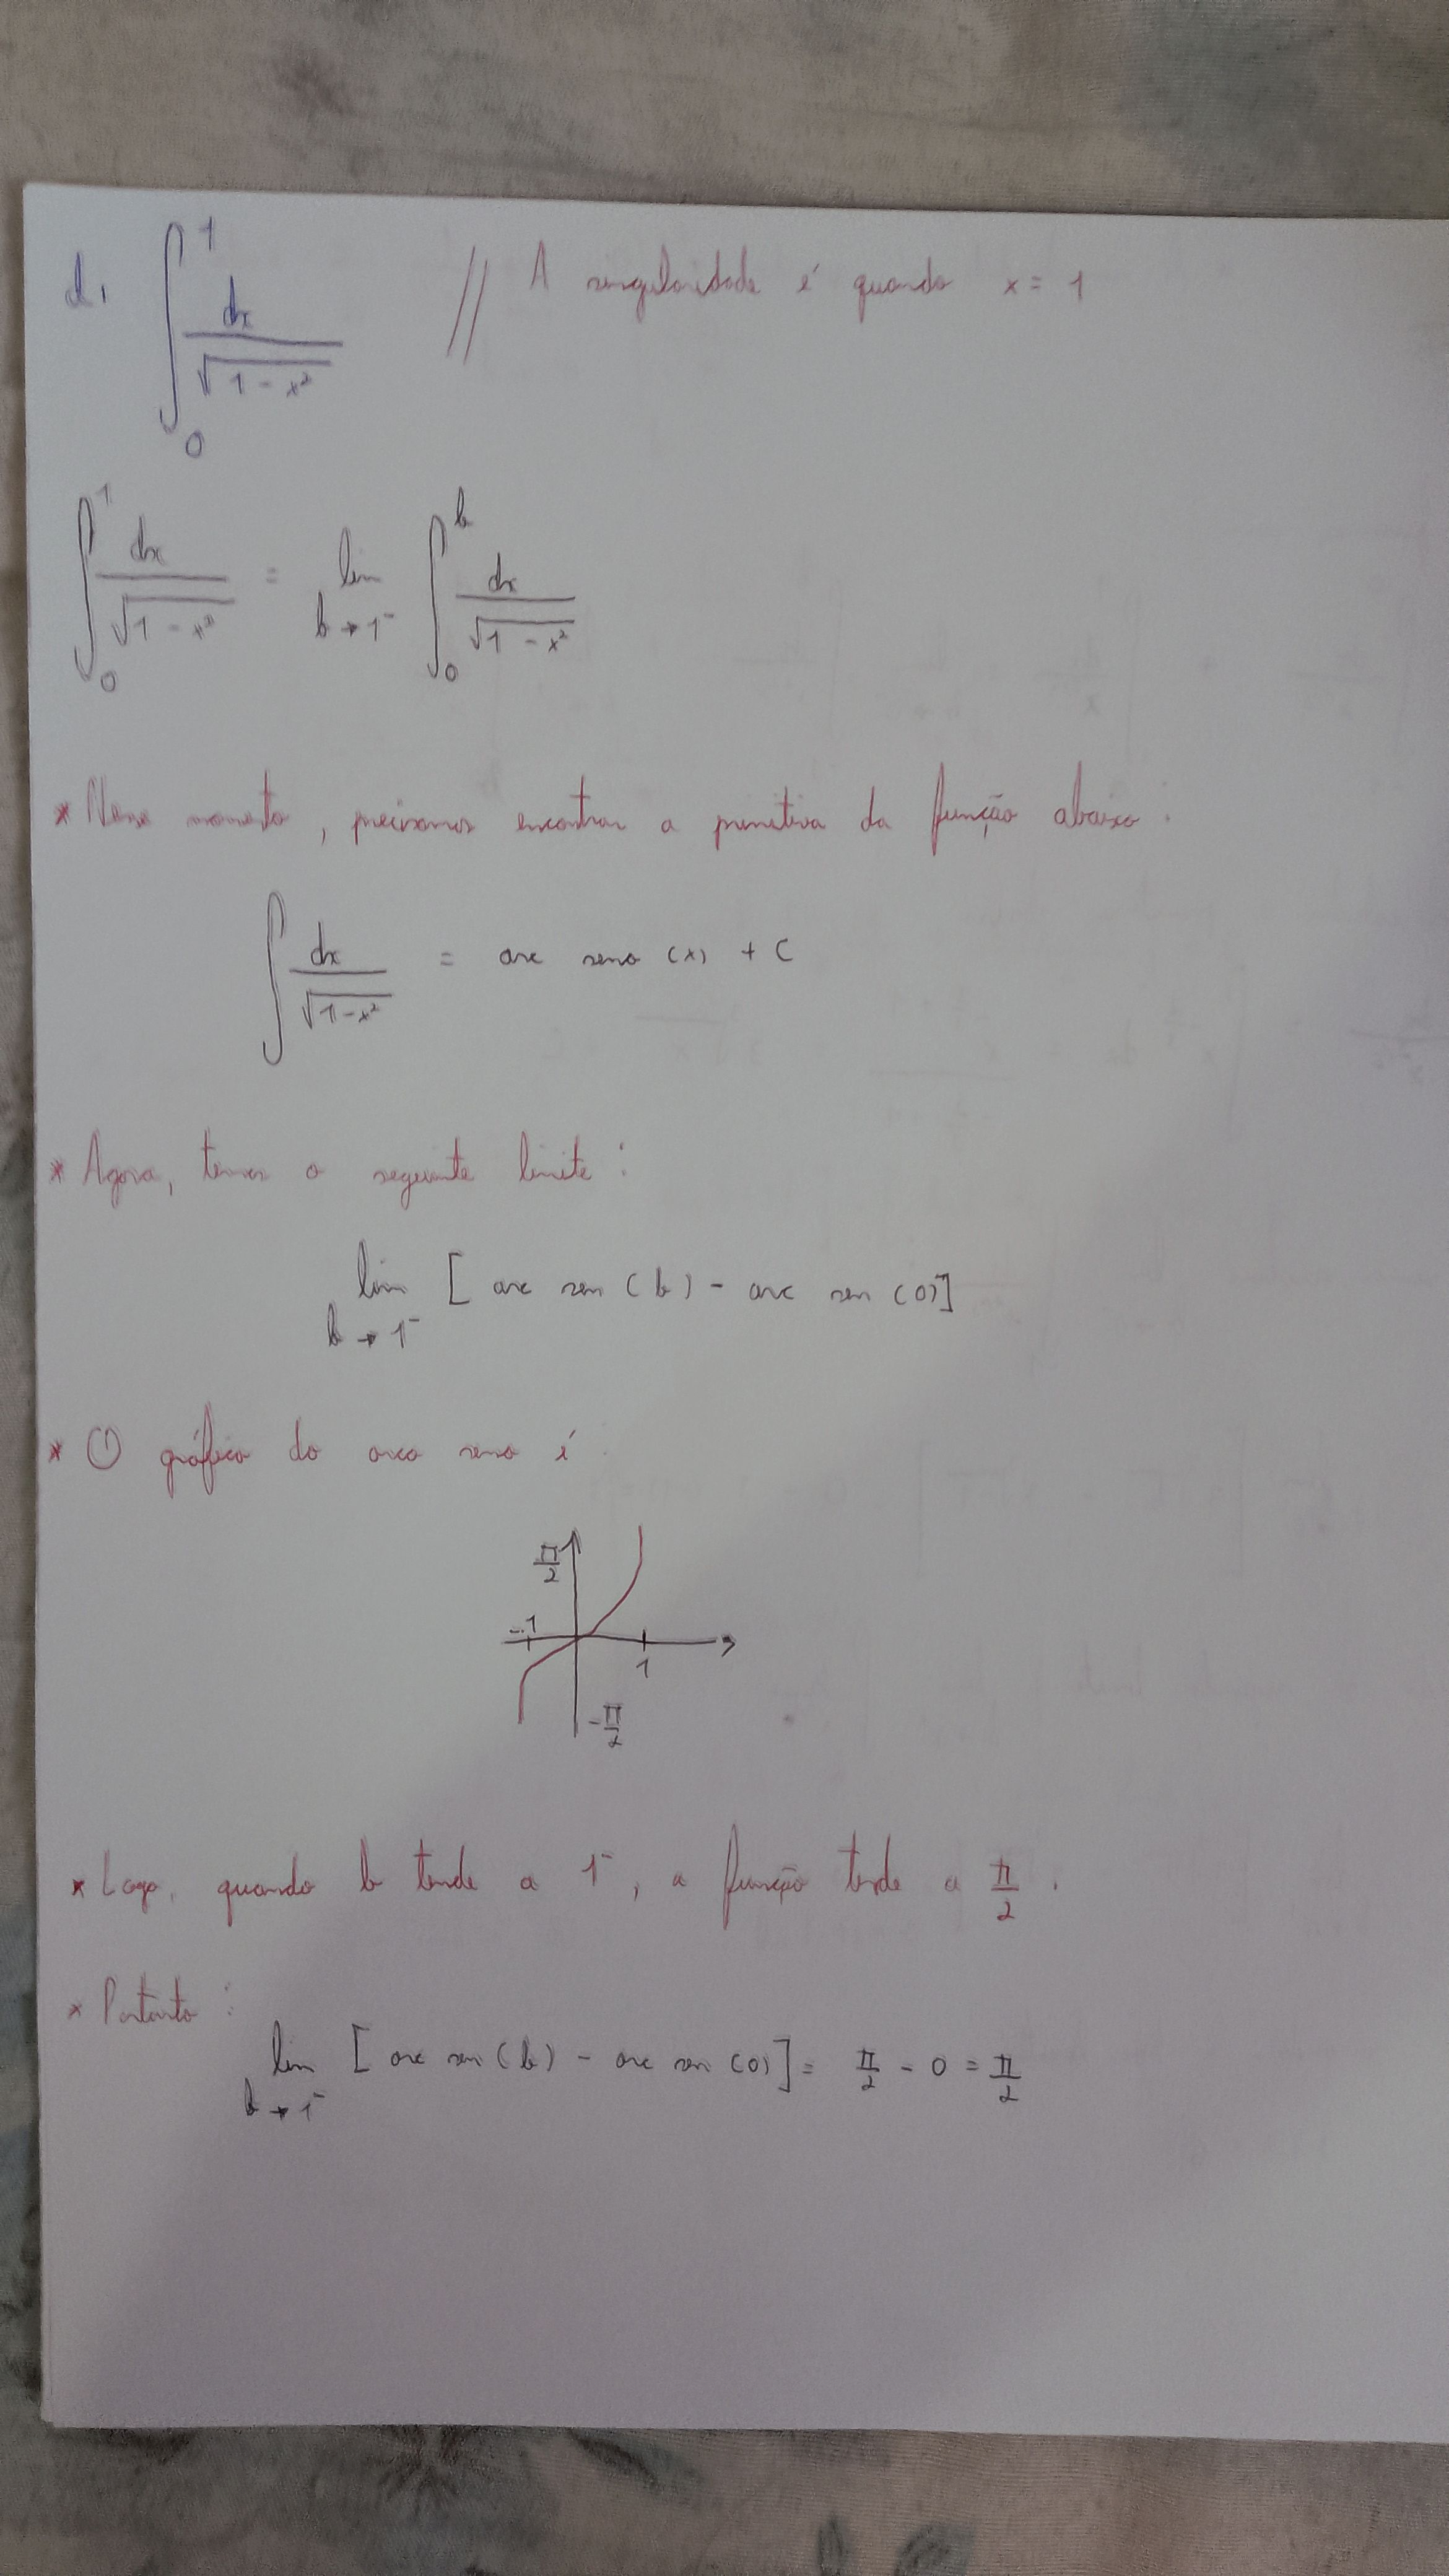 d. ∫₀¹ dx/√(1-x²) // A singularidade é quando x = 1
∫₀¹ dx/√(1-x²) = lim b→1⁻ ∫₀ᵇ dx/√(1-x²)
* Nesse momento, precisamos encontrar a primitiva da função abaixo:
∫ dx/√(1-x²) = arc seno (x) + C
* Agora, temos o seguinte limite:
lim b→1⁻ [arc sen (b) - arc sen (0)]
* O gráfico do arco seno é
π/2
-1
1
-π/2
* Logo, quando b tende a 1⁻, a função tende a π/2.
* Portanto:
lim b→1⁻ [arc sen (b) - arc sen (0)] = π/2 - 0 = π/2